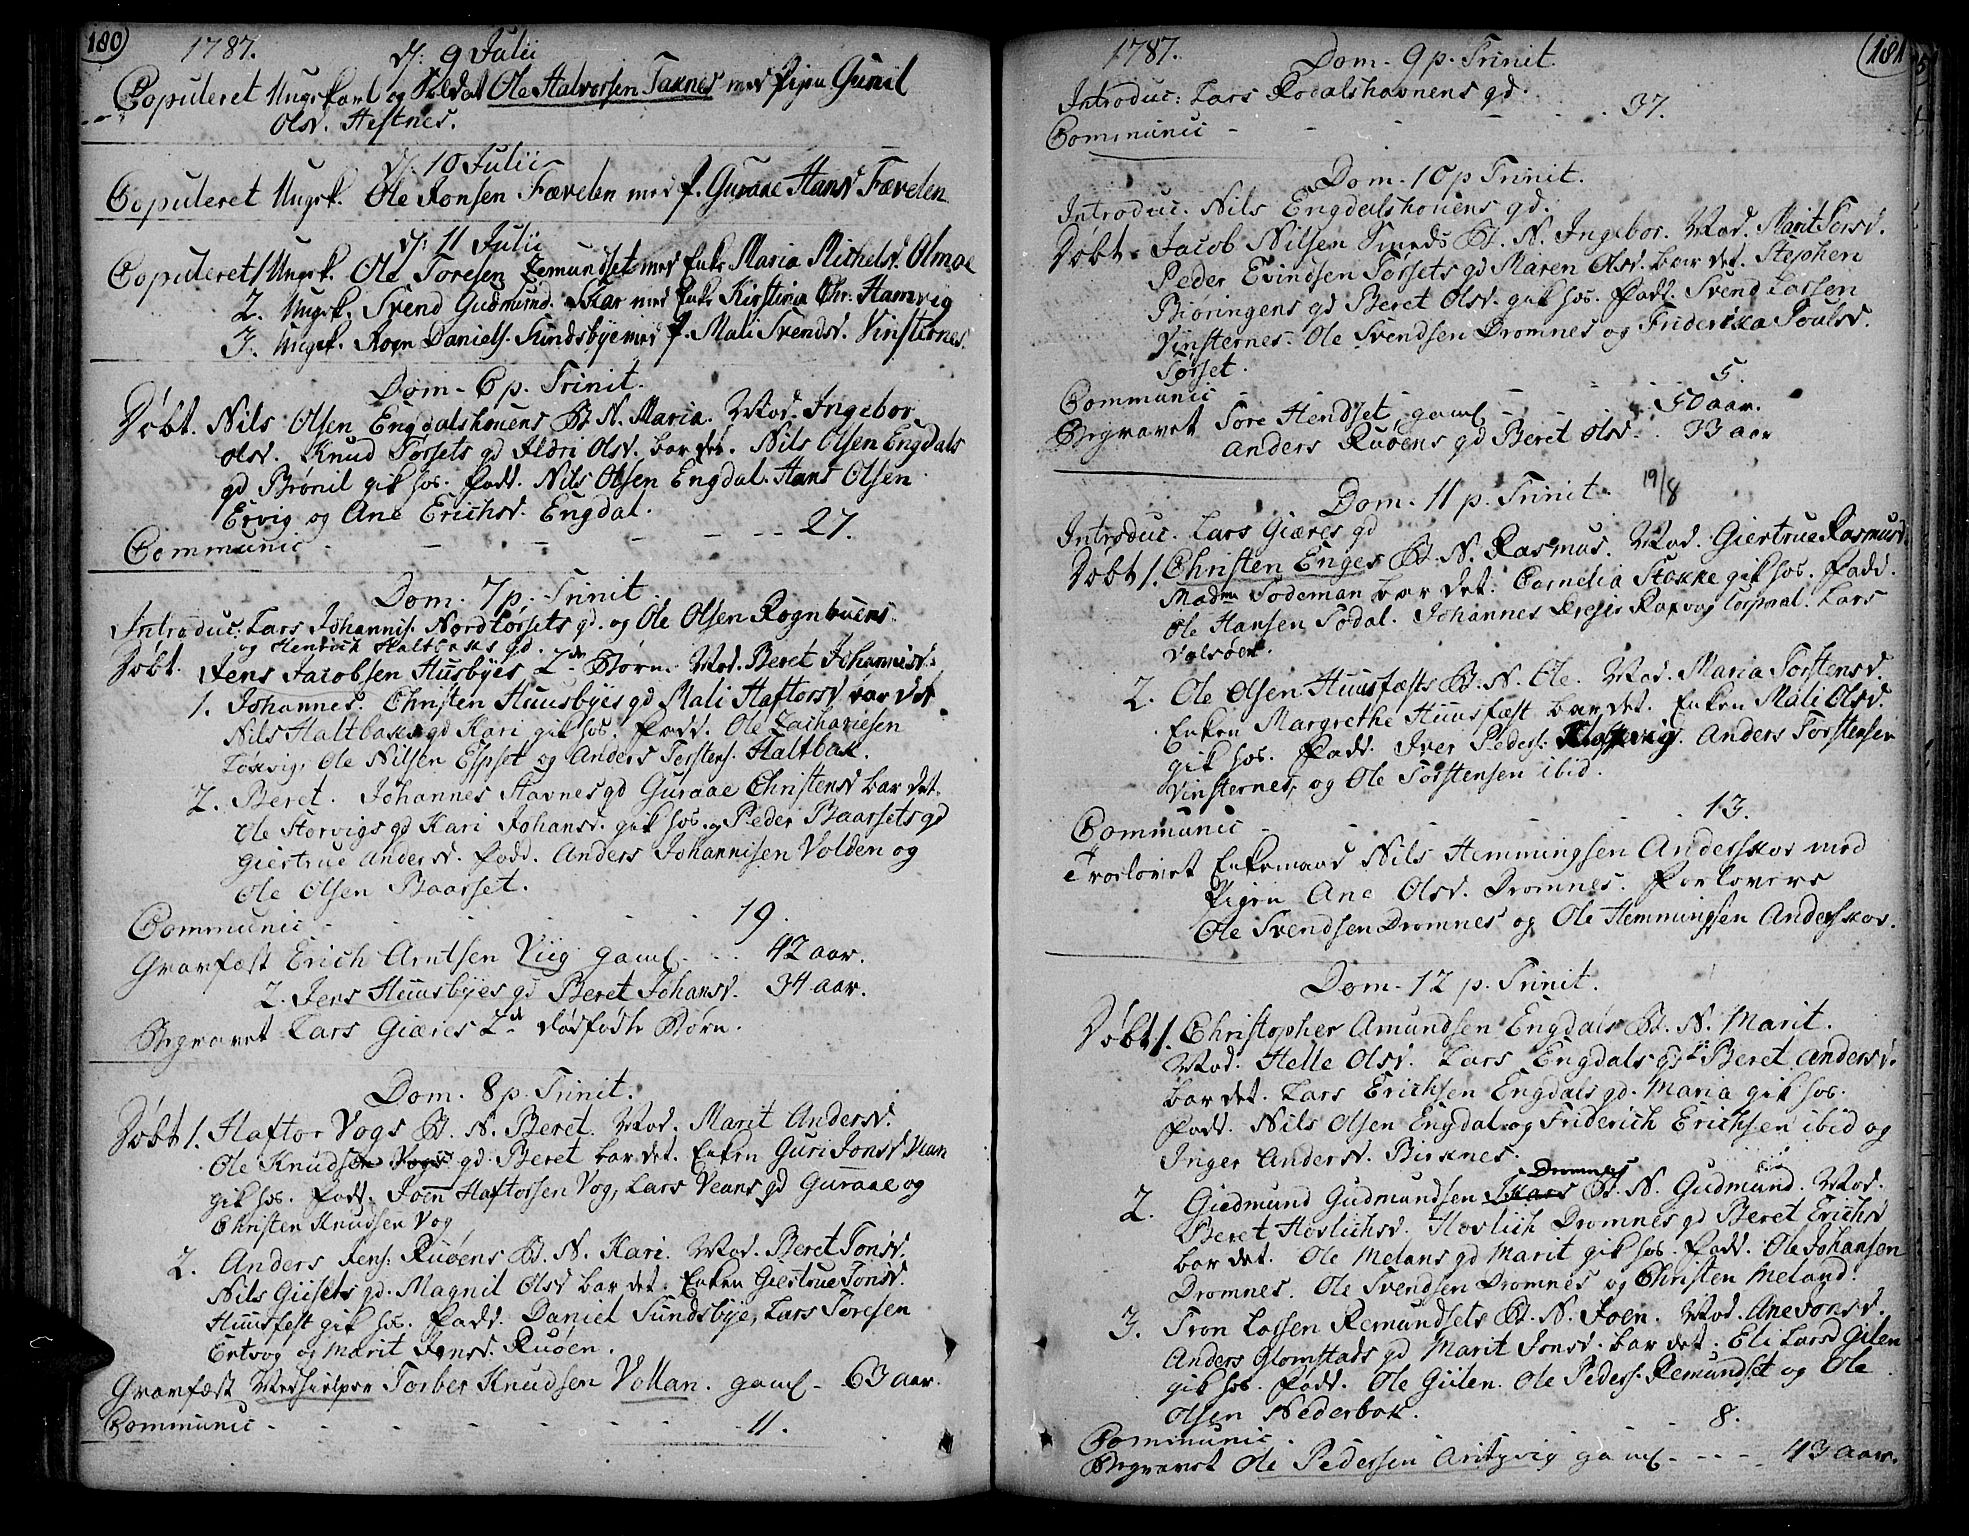 180
1787.
d: 9 Julii
Copuleret Ungkarl og Soldat Ole Halvorsen Taknes med Pigen Gunil
Olsd. Hestnes.
d: 10 Julii
Copuleret Ungk. Ole Ronsen Færelen med P. Guraae Hansd Færelen
d: 11 Julii
Copuleret 1 Ungk. Ole Toresen Remundset med Enke Maria Michelsd. Olmoe
2. Ungk. Svend Gudmund. Skar med Enke Kirstina Chr. Hamvig
3. Ungk. Roen Daniels. Sundsbye med P. Mali Svendsd. Vinsternes.
Dom. 6 p. Trinit.
Døbt. Nils Olsen Engdalshouens B. N. Maria. Mod. Ingebor
Olsd. Knud Torsets gd Ildri Olsd. bar det. Nils Olsen Engdals
gd Brønil gik hos. Fadd. Nils Olsen Engdal. Hans Olsen
Ervig og Ane Erichsd. Engdal.
Communic - - - - - - 27.
Dom. 7 p. Trinit.
Introduc: Lars Johannis. Nordtorsets gd. og Ole Olsen Rognbuens
og Henrich Haltbaks gd.
Døbt. Jens Jacobsen Husbyes 2de Børn. Mod. Beret Johannisd.
1. Johannes. Christen Huusbyes gd Mali Haftorsd bar det.
Nils Haltbaks gd Kari gik hos. Fadd. Ole Zachariesen
Lokvig, Ole Nilsen Espset og Anders Torstens. Haltbak.
2. Beret. Johannes Stavnes gd Guraae Christensd bar det.
Ole Storvigs gd Kari Johansd. gik hos. Peder Baarsets gd
Giertrue Andersd. Fadd. Anders Johannisen Volden og
Ole Olsen Baarset.
Communic - - - - - 19.
Gravfæst Erich Arntsen Viig gaml - - 42 aar.
2. Jens Huusbyes gd Beret Johansd. 34 aar.
Begravet Lars Giæres 2de dødfødte Børn.
Dom. 8 p. Trinit.
Døbt 1. Haftor Vogs B. N. Beret. Mod. Marit Andersd.
Ole Knudsen Vogs gd. Beret bar det. Enken Guri Jonsd
gik hos. Fadd. Joen Haftorsen Vog, Lars Veans gd Guraae og
Christen Knudsen Vog
2. Anders Jens: Ruøens B. N. Kari. Mod. Beret Tonsd.
Nils Giisets gd. Magnil Olsd bar det. Enken Giertrue Tonsd.
Huusfest gik hos. Fadd. Daniel Sundsbye, Lars Toresen
Ertvog og Marit Jensd. Ruøen.
Gravfæst Medhielper Torber Knudsen Vollan. gaml - 63 aar.
Communic - - - - - - 11.
181
1787.
Dom. 9 p. Trinit.
Introduc: Lars Rodalshavnens gd.
Communic - - - - - 37.
Dom. 10 p Trinit.
Introduc. Nils Engdalshouens gd.
Døbt. Jacob Nilsen Smeds B. N. Ingebor. Mod. Marit Torsd.
Peder Evindsen Torsets gd Maren Olsd. bar det. Stephen
Bioringens gd Beret Olsd. gik hos. Fadd. Svend Larsen
Vinsternes. Ole Svendsen Dromnes og Friderika Poulsd.
Torset.
Communic - - - - 5.
Begravet Tore Hendset gaml - - 50 aar.
Anders Ruøens gd Beret Olsd. - 33 aar
Dom. 11 p. Trinit. 19/8
Introduc. Lars Giæres gd
Døbt 1. Christen Enges B. N. Rasmus. Mod. Giertrue Rasmusd.
Madme Sodeman bar det. Cornelia Stokke gik hos. Fadd.
Ole Hansen Todal. Johannes Rokvog Corporal. Lars
Valsøen.
2. Ole Olsen Huusfæsts B. N. Ole. Mod. Maria Torstensd.
Enken Margrethe Huusfæst bar det. Enken Mali Olsd.
gik hos. Fadd. Iver Peders: Anders Torstensen
Vinsternes, og Ole Torstensen ibid.
Communic - - - - - 13.
Trolovet Enkemand Nils Hemmingsen Anderskar med
Pigen Ane Olsd. Dromnes. Forlovere
Ole Svendsen Dromnes og Ole Hemmingsen Anderskar.
Dom. 12 p. Trinit.
Døbt 1. Christopher Amundsen Engdals B. N. Marit.
Mod. Helle Olsd. Lars Engdals gd Beret Andersd.
bar det. Lars Erichsen Engdals gd. Maria gik hos.
Fadd. Nils Olsen Engdal og Friderich Erichsen ibid og
Inger Andersd. Birknes.
Dromnes
2. Gudmund Gudmundsen Skars B. N. Gudmund. Mod.
Beret Hovlichsd. Hovlich Dromnes gd Beret Erichsd
bar det. Ole Melans gd Marit gik hos. Fadd. Ole Johansen
Dromnes. Ole Svendsen Dromnes og Christen Meland.
3. Tron Larsen Remundsets B. N. Joen. Mod. Ane Jonsd.
Anders Glomstads gd Marit Jonsd. bar det. Eli Larsd Gilen
gik hos. Fadd. Ole Giilen. Ole Peders. Remundset og Ole
Olsen Nederbok.
Communic. - - - - 8.
Begravet Ole Pedersen Aritzvig gaml - - - 43 aar.